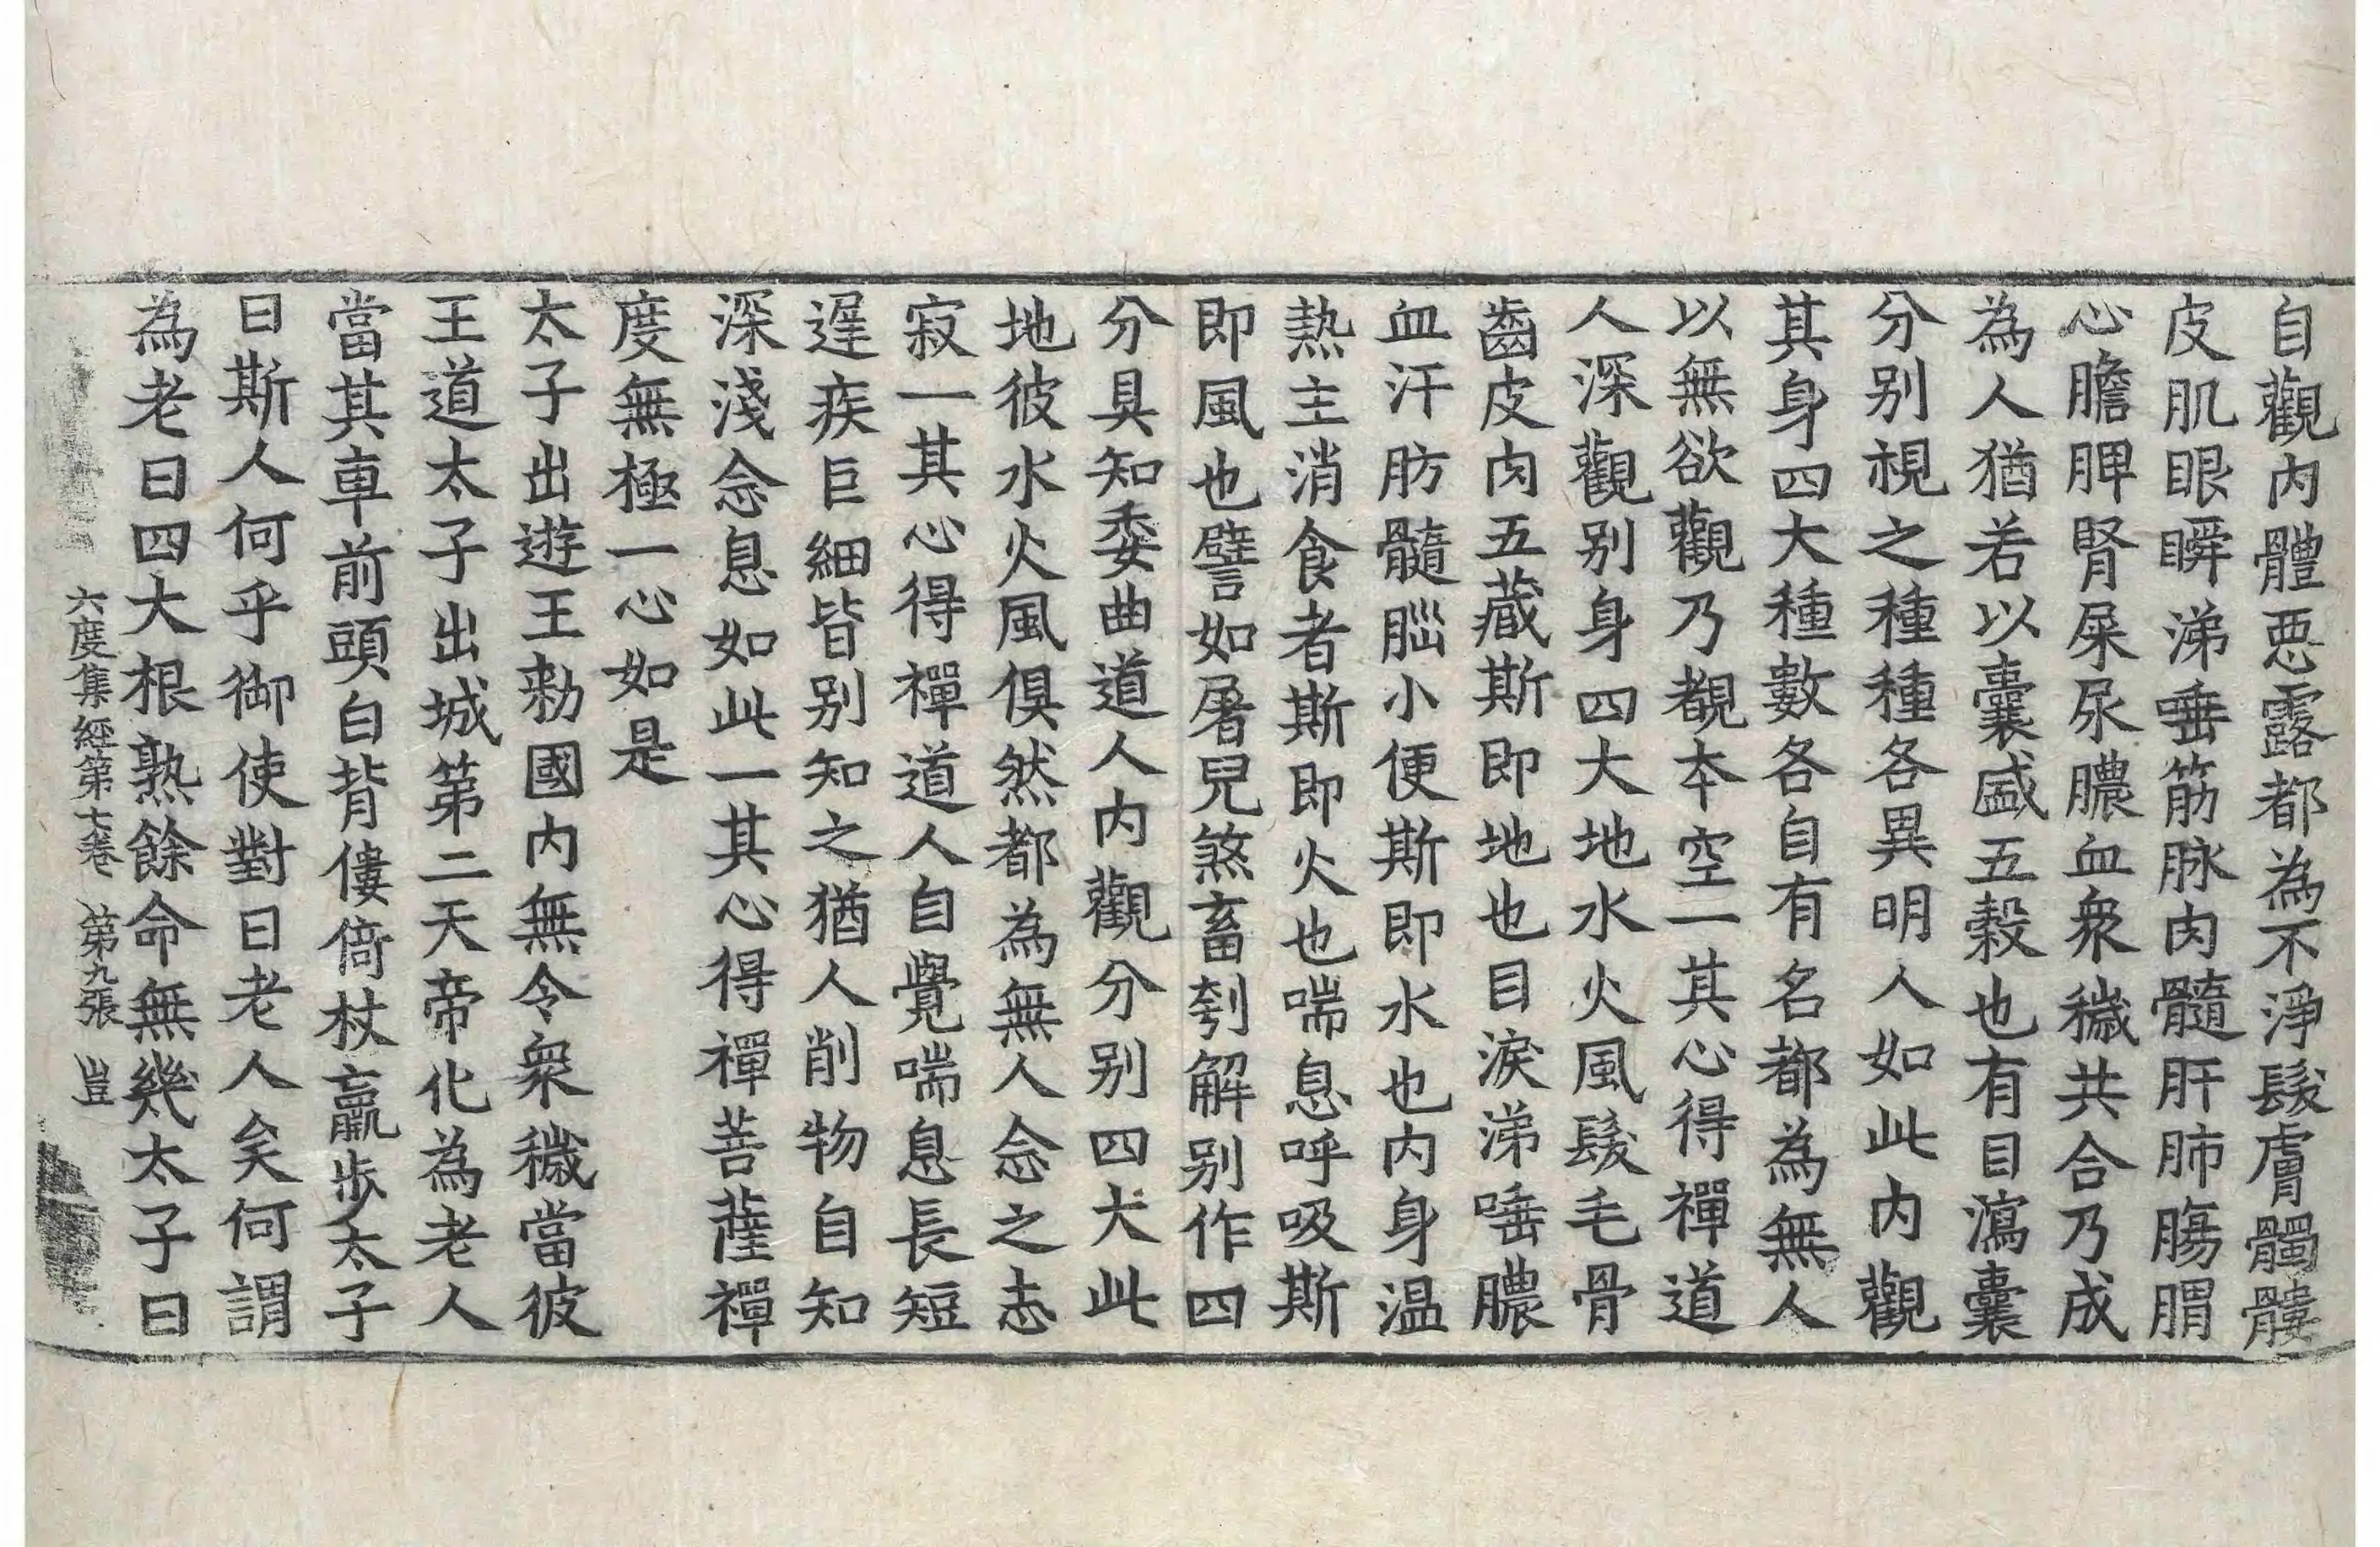 自觀內體惡露都為不淨髮膚髑髏
皮肌眼瞬涕唾筋脉肉髓肝肺膓胃
心膽脾腎屎尿膿血衆穢共合乃成
為人猶若以囊盛五穀也有目瀉囊
分别視之種種各異明人如此內觀
其身四大種數各自有名都為無人
以無欲觀乃覩本空一其心得禪道
人深觀别身四大地水火風髮毛骨
齒皮肉五藏斯即地也目淚涕唾膿
血汗肪髓腦小便斯即水也內身温
熱主消食者斯即火也喘息呼吸斯
即風也譬如屠兒煞畜刳解别作四
分具知委曲道人內觀分别四大此
地彼水火風俱然都為無人念之志
寂一其心得禪道人自覺喘息長短
遲疾巨細皆别知之猶人削物自知
深淺念息如此一其心得禪菩薩禪
度無極一心如是
太子出遊王勑國內無令衆穢當彼
王道太子出城第二天帝化為老人
當其車前頭白背僂倚杖羸步太子
曰斯人何乎御使對曰老人矣何謂
為老曰四大根熟餘命無幾太子曰
六度集經第七卷 第九張 豈